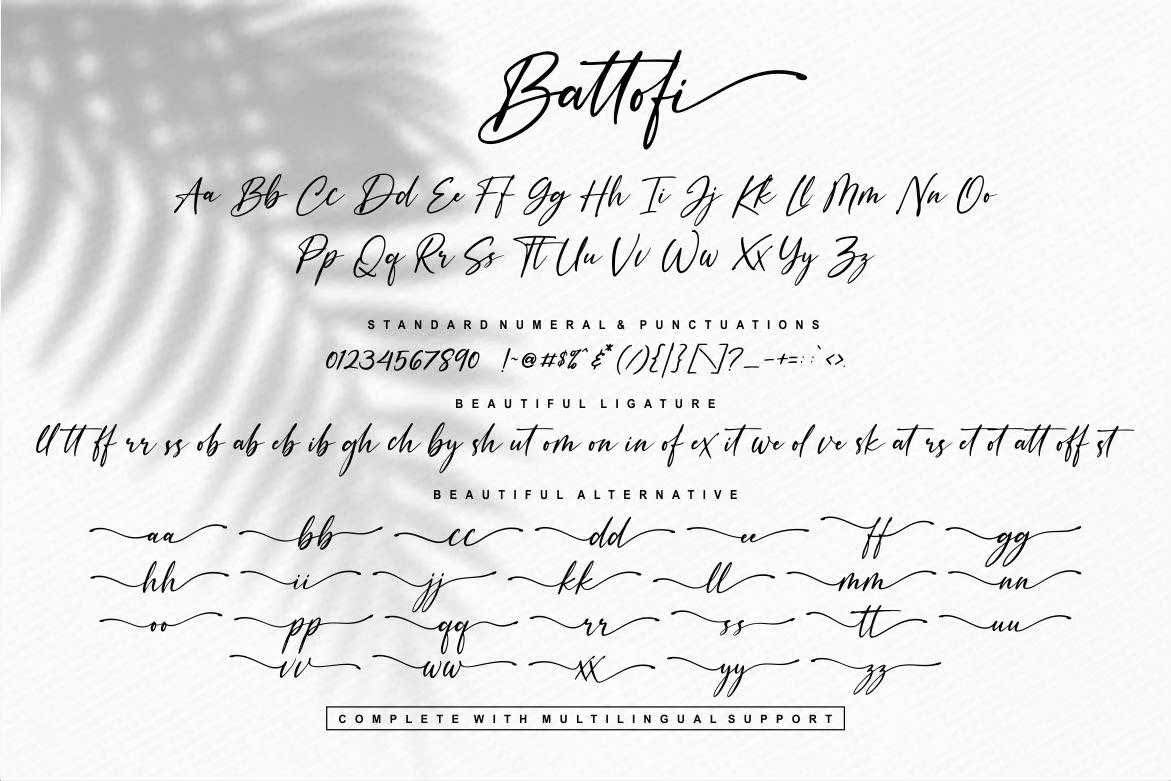 Battofi
Aa Bb Cc Dd Ee Ff Gg Hh Ii Jj Kk Ll Mm Nn Oo
Pp Qq Rr Ss Tt Uu Vv Ww Xx Yy Zz
STANDARD NUMERAL & PUNCTUATIONS
01234567890 !~@#$%^&*(/){|}[\]?_-+=:;`<>.
BEAUTIFUL LIGATURE
ll tt ff rr ss ob ab eb ib gh ch by sh ut om on in of ex it we ol ve sk at rs et ot att off st
BEAUTIFUL ALTERNATIVE
aa bb cc dd ee ff gg
hh ii jj kk ll mm nn
oo pp qq rr ss tt uu
vv ww xx yy zz
COMPLETE WITH MULTILINGUAL SUPPORT